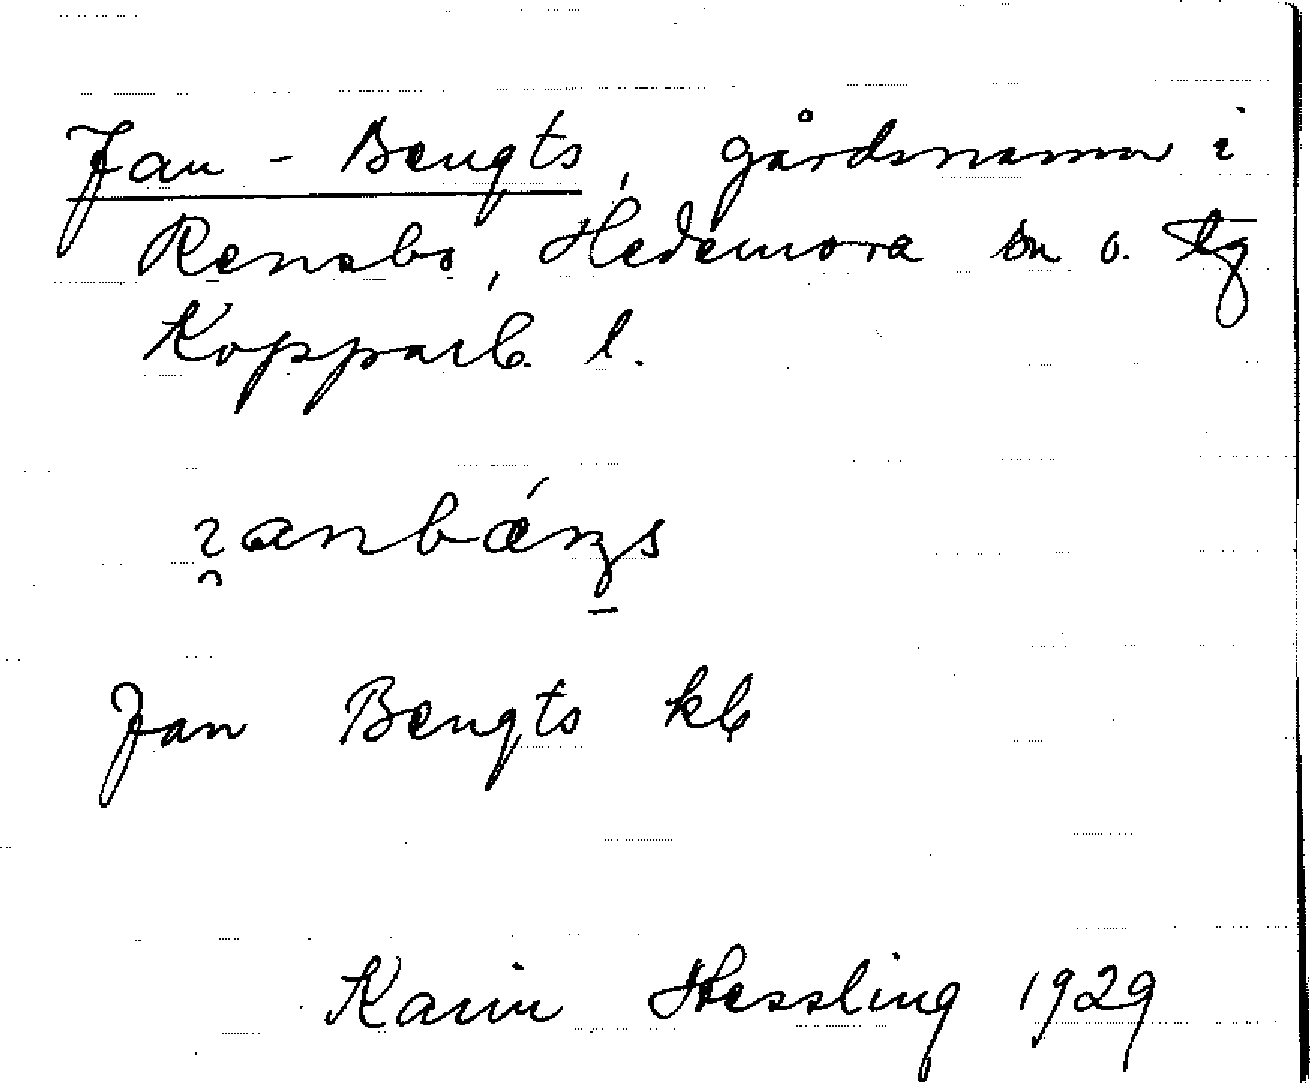 Jan-Bengts, gårdsnamn i
Rensbo, Hedemora sn o. tg
Kopparb. l.
Jan Bengts kb
Karin Hessling 1929